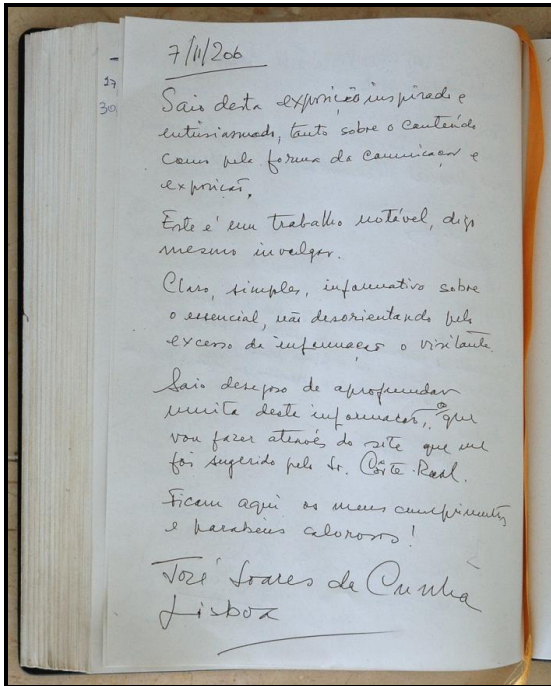 7/11/206
17
30
Saio desta exposição inspirado e
entusiasmado, tanto sobre o conteúdo
como pela forma da comunicação e
exposição.
Este é um trabalho notável, digo
mesmo invulgar.
Claro, simples, informativo sobre
o essencial, não desorientando pelo
excesso de informação o visitante.
Saio desejoso de aprofundar
muita deste informação, o que
vou fazer através do site que me
foi sugerido pelo Sr. Côrte-Real.
Ficam aqui os meus cumprimentos
e parabéns calorosos!
José Soares da Cunha
Lisboa